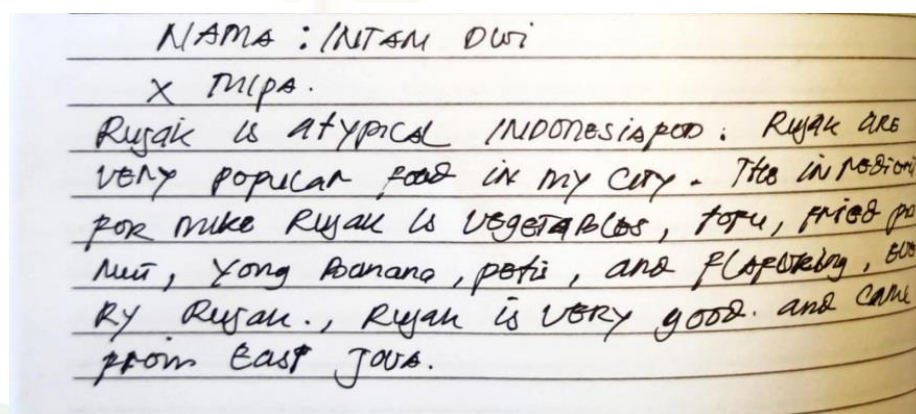 NAMA : INTAN DWI
X MIPA.
Rujak is atypical INDONesiaFOD. Rujak are
very popular food in my city. The inredient
for make Rujak is vegetables, tofu, fried
nut, yong Banana, petis, and
ry Rujak., Rujak is very good. and came
from East Java.